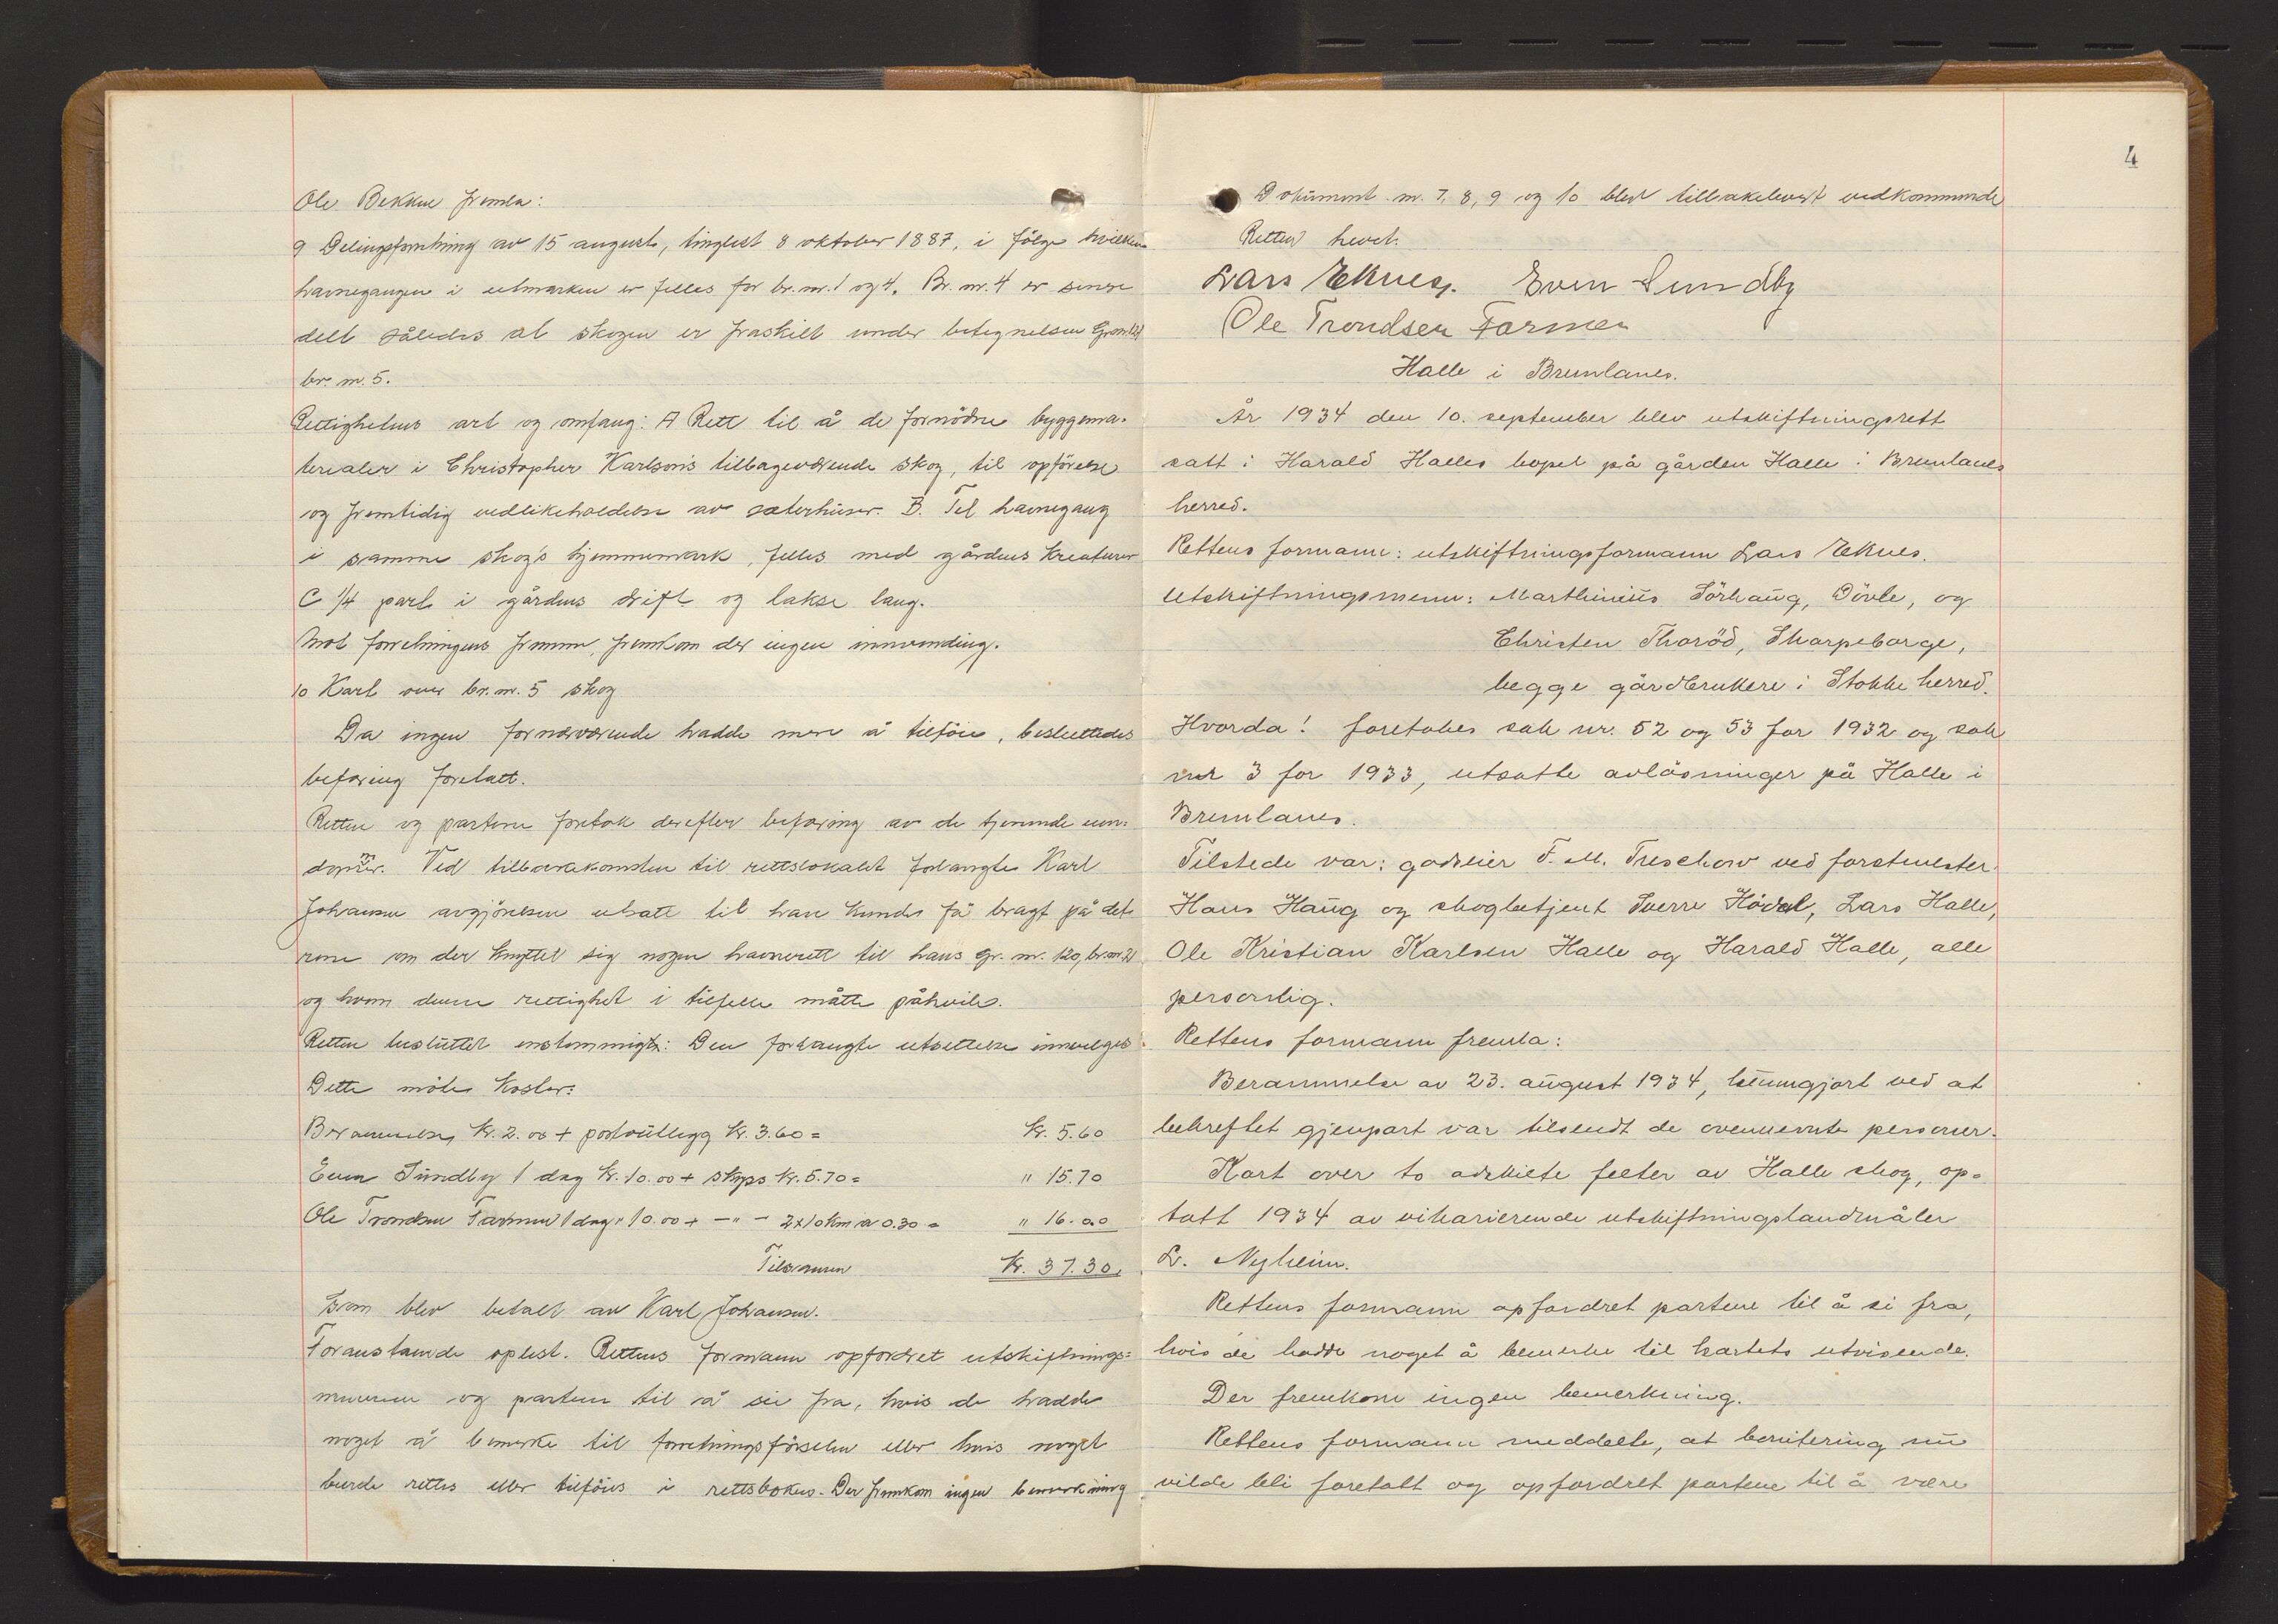 Ole Bekkene fremla:
9 Delingsforretning av 15 august, tinglest 8 oktober 1887, i følge hvilken
havnegangen i utmarken er felles for br. nr. 1 og 4. Br. nr. 4 er senere
delt således at skogen er fraskilt under betegnelsen
br. nr. 5.
Rettighetens art og omfang: A Rett til å de fornödne byggema-
terialer i Christopher Karlsons tilbageværende skog, til opförelse
og fremtidig vedlikeholdelse av sæterhüser. B. Til havnegang
i samme skog's hjemmemark, felles med gårdens kreaturer
C 1/4 part i gårdens drift og lakse laug.
Mot forretningens fremme, fremkom der ingen innvending.
10 Kart over br. nr. 5 skog
Da ingen fornærværende hadde mere å tilföie, besluttedes
befaring foretatt.
Retten og partene foretok derefter befaring av de tjenende eien-
dommer. Ved tilbakekomsten til rettslokalet forlangte Karl
Johansen avgjörelsen utsatt til han kunde få bragt på det
rene om der knyttet sig nogen havnerett til hans gr. nr. 120, br. nr. 2
og hvem denne rettighet i tilfelle måtte påhvile.
Retten besluttet enstemmig: Den forlangte utsettelse innvilges
Dette möte koster:
Berammelse Kr. 2.00 + portoütlegg Kr. 3.60 = Kr. 5.60
Even Sündby 1 dag Kr. 10.00 + skyss Kr. 5.70 = " 15.70
Ole Trondsen Farmen 1 dag " 10.00 + - " - 2x10 km a 0.30 = " 16.00
Tilsammen Kr. 37.30,
som blev betalt av Karl Johansen.
Foranstående oplest. Rettens formann opfordret utskiftnings-
mennene og partene til å si fra, hvis de hadde
noget å bemerke til forretningsförselen eller hvis noget
burde rettes eller tilföies i rettsboken. Der fremkom ingen bemerkning
4
Dokument nr. 7, 8, 9 og 10 blev tilbakelevert vedkommende
Retten hevet.
Lars Eknes. Even Sundby
Ole Trondsen Farmen
Halle i Brunlanes.
År 1934 den 10. september blev utskiftningsrett
satt i Harald Halles bopel på gården Halle i Brunlanes
herred.
Rettens formann: utskiftningsformann Lars Eknes.
Utskiftningsmenn: Marthinius Sörhaug, Dövle, og
Christen Thoröd, Skarpeborge,
begge gårdbrukere i Stokke herred.
Hvorda! foretokes sak nr. 52 og 53 for 1932 og sak
nr 3 for 1933, utsatte avlösninger på Halle i
Brunlanes.
Tilstede var: godseier F. M. Treschow ved forstmester
Hans Haug og skogbetjent Sverre Hödal, Lars Halle,
Ole Kristian Karlsen Halle og Harald Halle, alle
personlig.
Rettens formann fremla:
Berammelse av 23. august 1934, kunngjort ved at
bekreftet gjenpart var tilsendt de ovennevnte personer.
Kart over to adskilte felter av Halle skog, op-
tatt 1934 av vikarierende utskiftningslandmåler
L. Nyheim.
Rettens formann opfordret partene til å si fra,
hvis de hadde noget å bemerke til kartets utvisende.
Der fremkom ingen bemerkning.
Rettens formann meddelte, at bonitering nu
vilde bli foretatt og opfordret partene til å være